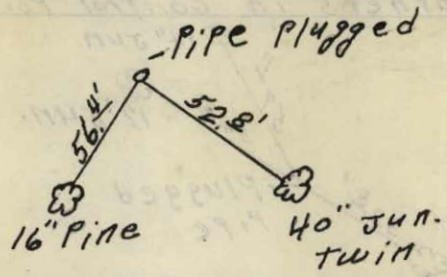 Pipe Plugged
56.4'
52.8'
16" Pine
40" Jun.
Twin